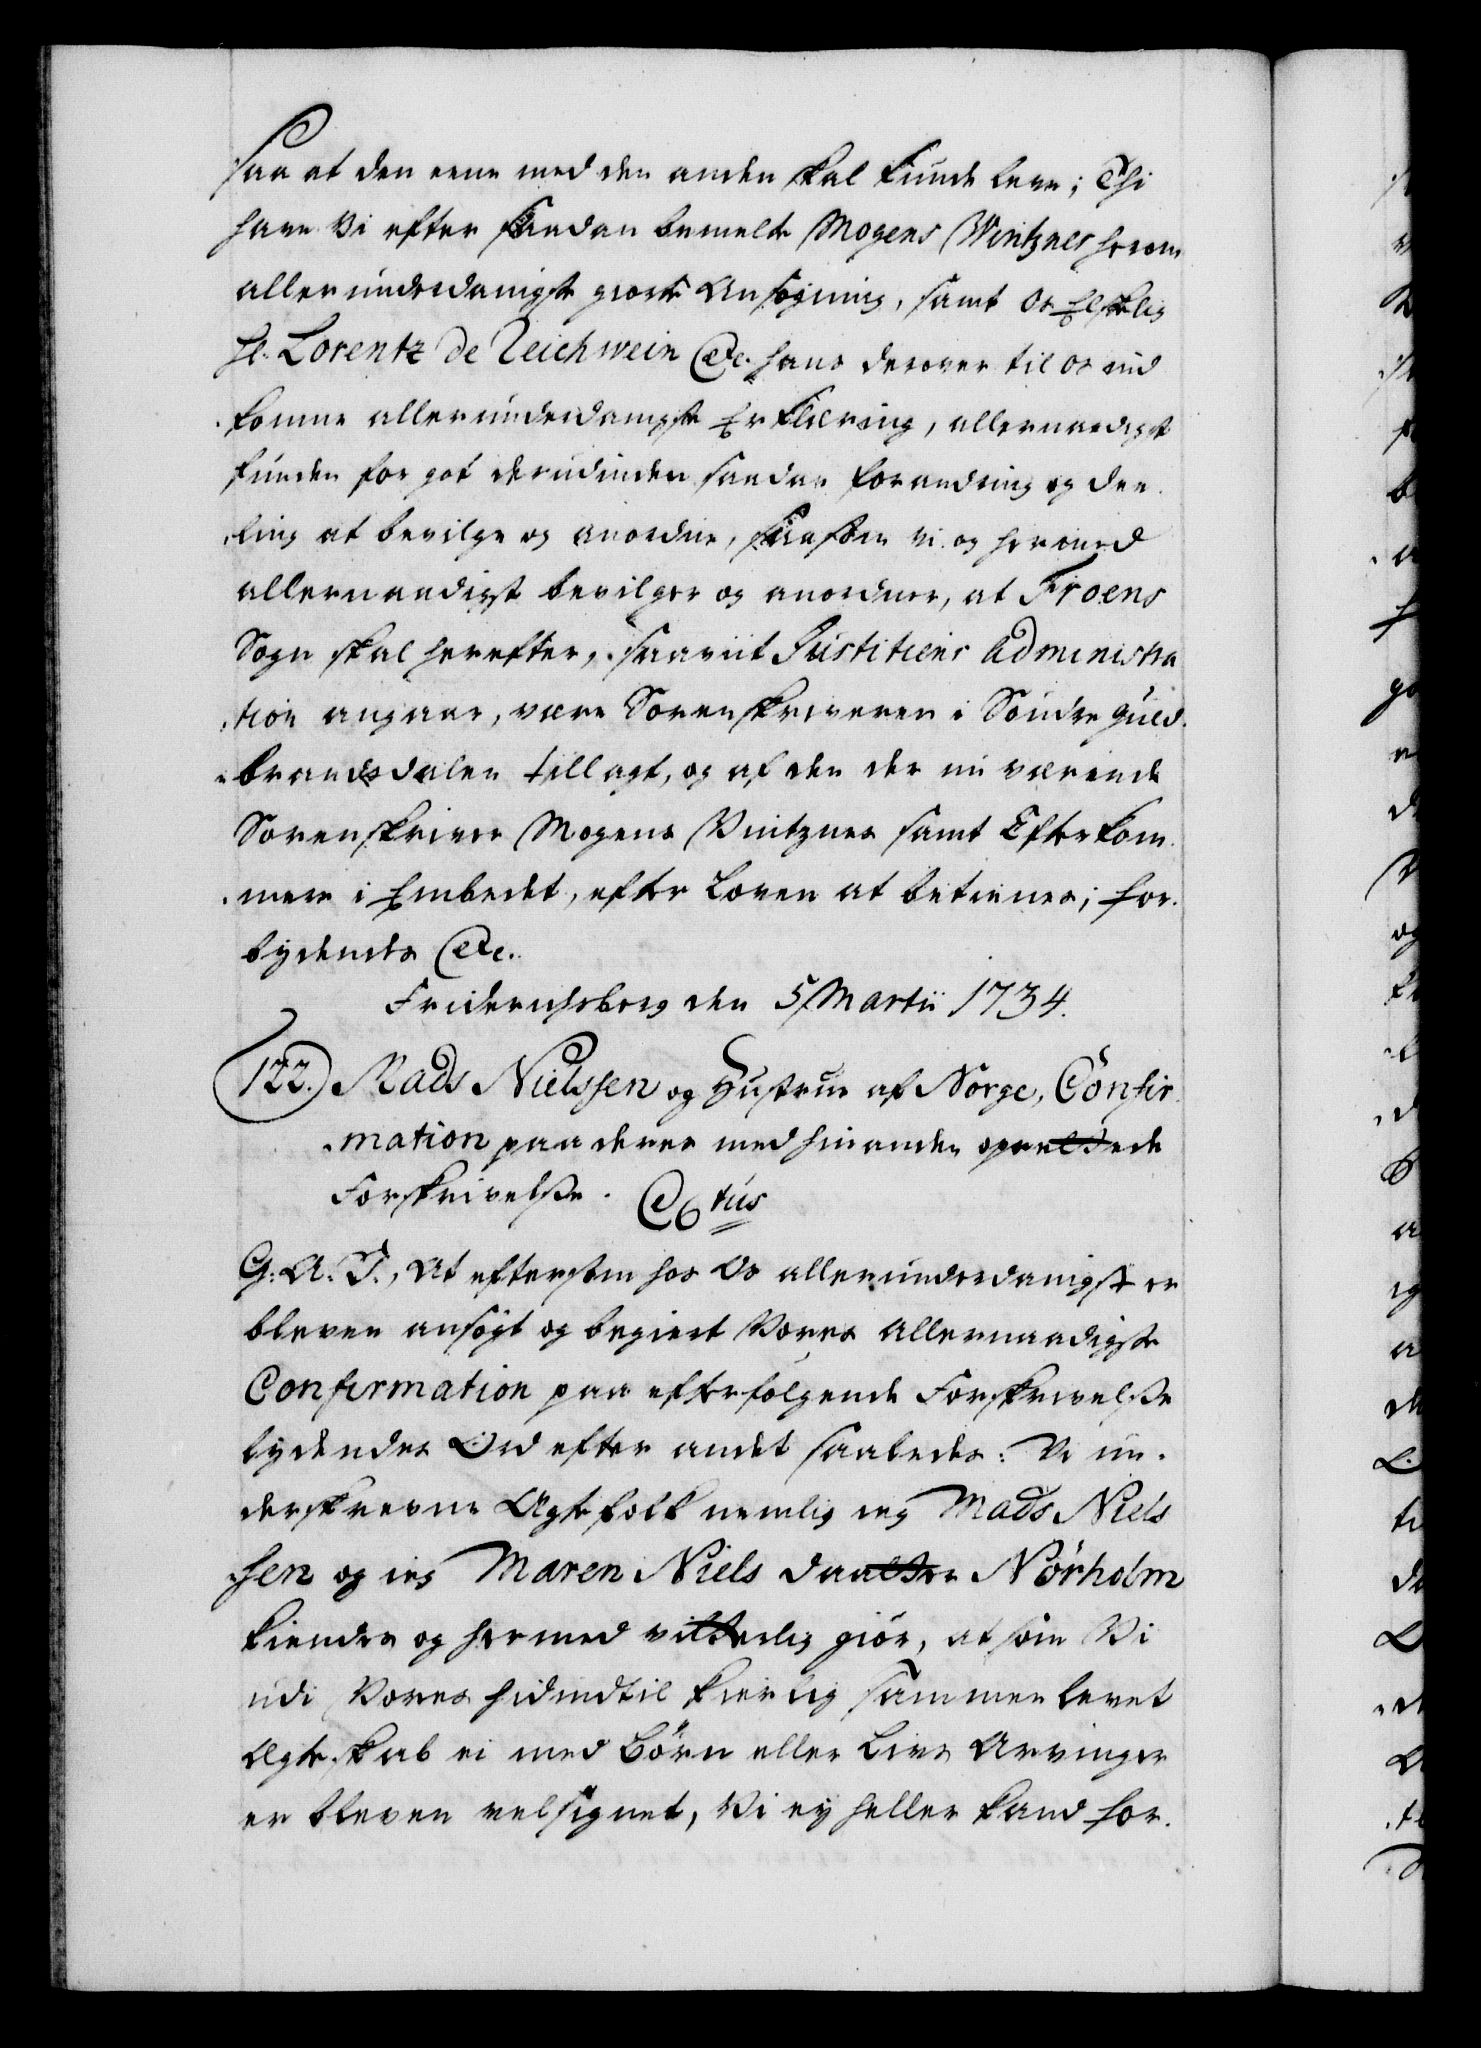 saa at den eene med den anden skal kunde leve; Thi
have Vi efter saadan bemelte Mogens Wintznes herom
allerunderdanigst giorte Ansøgning, samt Os Elskelig
Hr. Lorentz de Teichwein Etc. hans derover til os ind
komne allerunderdanigste Erklæring, allernaadigst
funden for got derudinden saadan forandring og dee
ling at bevilge og anordne, saasom vi og hermed
allernaadigst bevilger og anordner, at Froens
Sogn skal herefter, saaviit Justitiens administra
tion angaar, være Sorenskriveren i Söndre Guld
brandsdalen tillagt, og af den der nu værende
Sorenskriver Mogens Vintznes samt Efterkom
mere i Embedet, efter Loven at betienes; For
bydendes Etc.
Friderichsberg den 5 Martii 1734.
122. Mads Nielssen og Hustrue af Norge, Confir
mation paa deres med hinanden oprettede
Forskrivelse. Ctus
G: A. V., At eftersom hos Os allerunderdanigst er
bleven ansøgt og begiert Vores allernaadigste
Confirmation paa efterfølgende Forskrivelse
lydendes Ord efter andet saaledes: Vi un
derskrevne Ægtefolk nemlig ieg Mads Niels
sen og ieg Maren Niels daatter Nörholm
kiendes og hermed vitterlig giör, at som Vi
udi Vores hidindtil kierlig sammen levet
Ægteskab ei med Börn eller Livs Arvinger
er bleven velsignet, Vi ey heller kand for